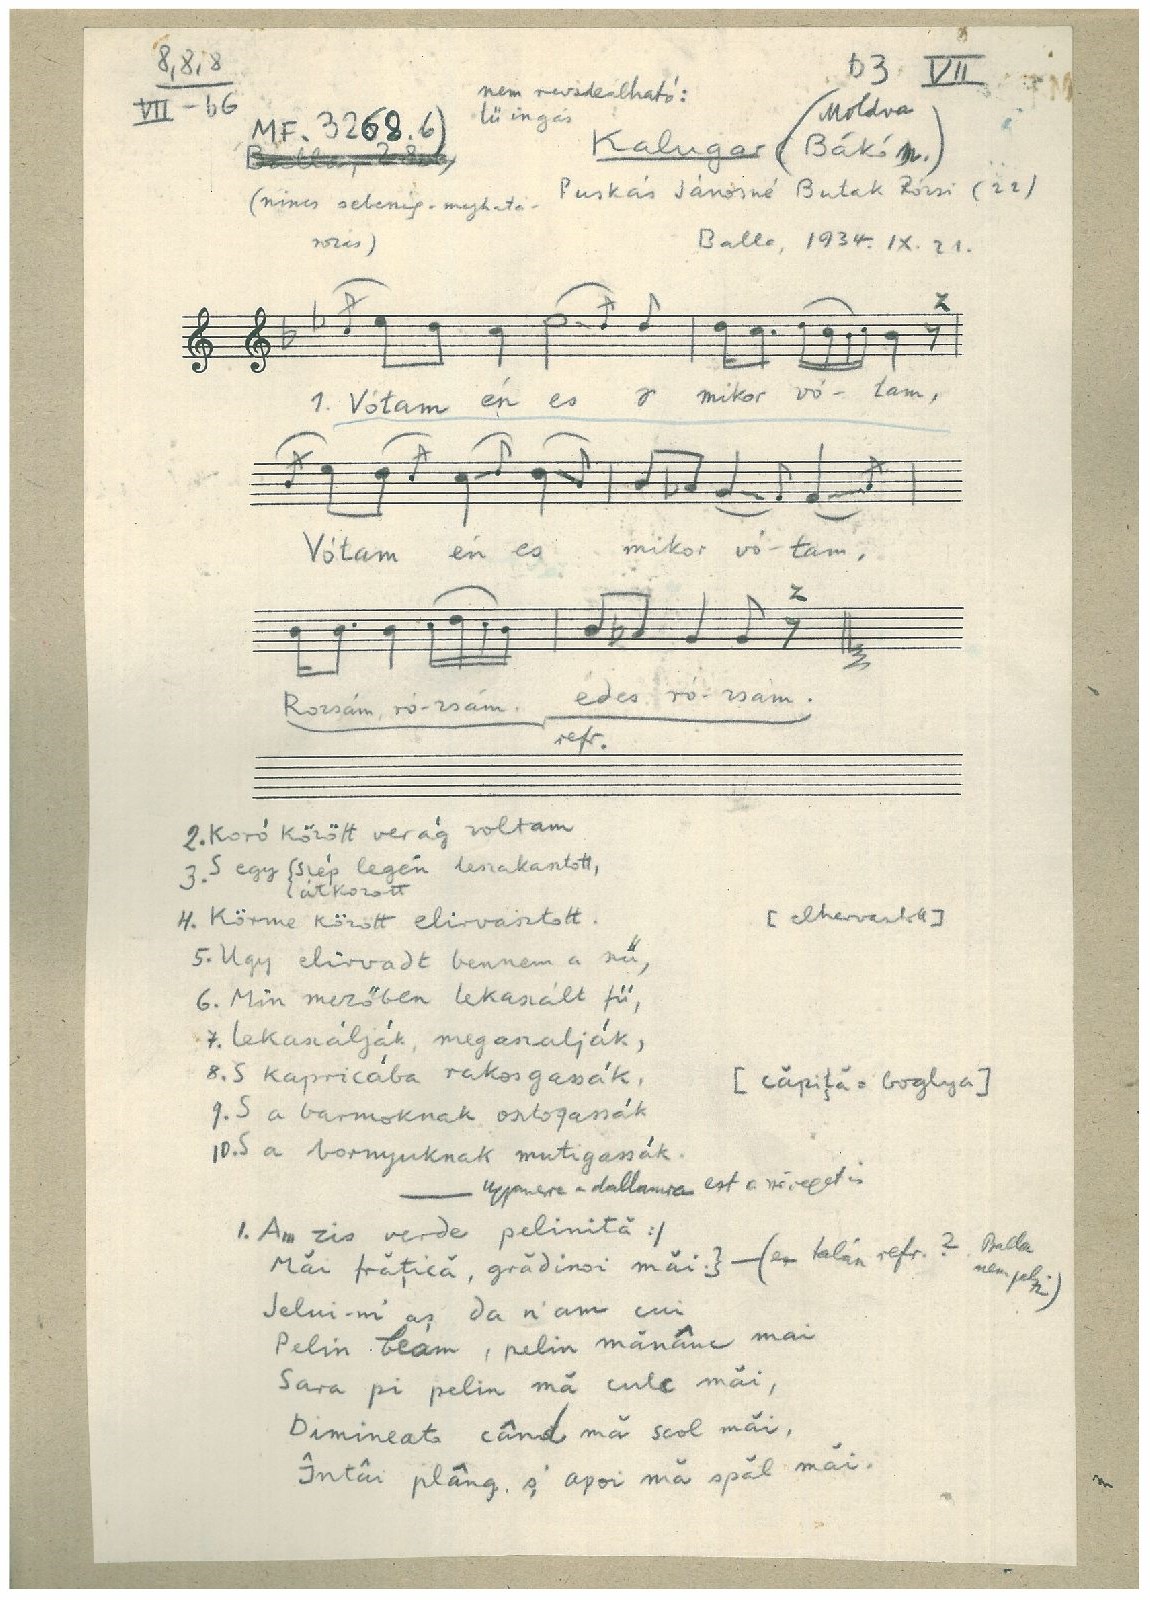 8,8,8
VII - b6
b3 VII
nem revideálható:
lü ingás
MF. 3268.6)
Kalugar (Moldva Bákó m.)
(nincs sebesség-meghatá-
rozás)
Puskás Jánosné Butak Rózsi (22)
Balla, 1934. IX. 21.
1. Vótam én es mikor vó- tam,
Vótam én es mikor vó-tam,
Rozsám, ró-zsám. édes ró-zsám.
refr.
2. Koró között verág voltam
3. S egy {szép legén leszakasztott,
{átkozott
4. Körme között elirvasztott. [elhervasztott]
5. Ugy elirvadt bennem a szű,
6. Min mezőben lekaszált fű,
7. Lekaszálják, megaszalják,
8. S kapricába rakosgassák, [căpiţă = boglya]
9. S a barmoknak osztogassák
10. S a bornyuknak mutigassák.
Ugyanere a dallamra ezt a szöveget is
1. Am zis verde peliniță :/
Măi frățică, grădinoi măi :} — (ez talán refr. ? Balla
nem jelzi)
Jelui-m' aș da n'am cui
Pelin beam, pelin mănânc mai
Sara pi pelin mă culc măi,
Dimineata când mă scol măi,
Întâi plâng, ș' apoi mă spăl măi.